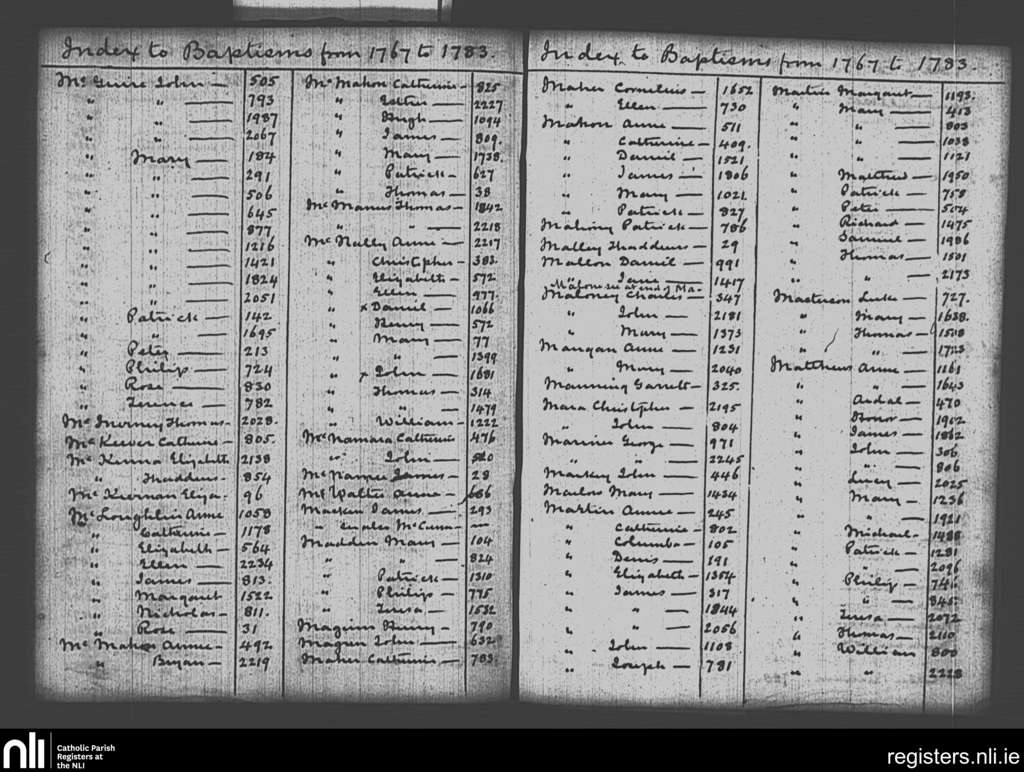 Index to Baptisms from 1767 to 1783.
Mc Guire John — 505
" " — 793
" " — 1987
" " — 2067
" Mary — 184
" " — 291
" " — 506
" " — 645
" " — 877
" " — 1216
" " — 1421
" " — 1824
" " — 2051
" Patrick — 142
" " — 1695
" Peter — 213
" Philip — 724
" Rose — 830
" Terence — 782
Mc Inerney Thomas - 2028.
Mc Keever Catherine - 805.
Mc Kenna Elizabeth 2138
" Thaddeus - 854
Mc Kiernan Eliza - 96
Mc Loughlin Anne 1058
" Catherine — 1178
" Elizabeth — 564
" Ellen — 2234
" James — 813.
" Margaret 1522
" Nicholas — 811.
" Rose — 31
Mc Mahon Anne - 492
" Bryan — 2219
Mc Mahon Catherine - 825
" Esther — 2227
" Hugh — 1094
" James — 809.
" Mary — 1738.
" Patrick - 627
" Thomas - 38
Mc Manus Thomas - 1842
" " — 2218
Mc Nally Anne — 2217
" Christopher - 383.
" Elizabeth - 572
" Ellen — 977.
" x Daniel — 1066
" Henry — 572
" Mary — 77
" " — 1399
" x John — 1681
" Thomas — 314
" " — 1479
" William - 1222
Mc Namara Catherine 476
" John —
James - 28
Mc Walter Anne - 686
James — 293
" Mc Cann —
Madden Mary — 104
" " — 824
" Patrick — 1310
" Philip — 775
" Teresa — 1532
Maginn Henry — 790
Magin John — 632
Maher Catherine — 783.
Index to Baptisms from 1767 to 1783.
Maher Cornelius — 1652
" Ellen — 730
Mahon Anne — 511
" Catherine - 409.
" Daniel — 1521
" James — 1806
" Mary — 1021
" Patrick — 827
Mahony Patrick — 786
Malley Thaddeus — 29
Mallon Daniel — 991
" Jane — 1417
Malone see at end of Ma-
Maloney Charles — 347
" John — 2181
" Mary — 1373
Mangan Anne — 1231
" Mary — 2040
Manning Garrett - 325.
Mara Christopher — 2195
" John — 804
George — 971
" " — 2245
Markey John — 446
Mary — 1434
Martin Anne — 245
" Catherine - 802
" Columba - 105
" Denis — 191
" Elizabeth - 1354
" James — 317
" " — 1844
" " — 2056
" John — 1108
" Joseph — 781
Martin Margaret — 1193.
" Mary — 413
" " — 803
" " — 1038
" " — 1121
" Matthew — 1950
" Patrick — 758
" Peter — 504
" Richard — 1475
" Samuel — 1986
" Thomas — 1501
" " — 2173
Masterson Luke — 727.
" Mary — 1638.
" Thomas — 1508
" " — 1723
Matthews Anne — 1161
" " — 1643
" — 470
" Honor — 1902
" James — 1862
" John — 306
" " — 806
" Lucy — 2025
" Mary — 1236
" " — 1921
" Michael - 1488
" Patrick — 1281
" " — 2096
" Philip — 746
" " — 845
" Teresa — 2072
" Thomas — 2110
" William 800
" " 2228
nli
Catholic Parish
Registers at
the NLI
registers.nli.ie